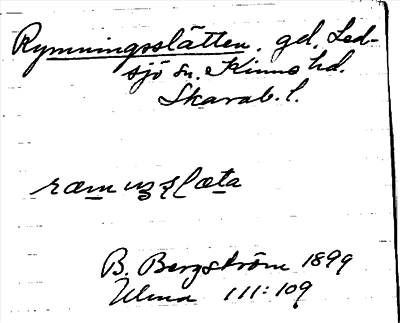 Rymningsslätten. gd. Led-
sjö sn. Kinne hd.
Skarab. l.
ræmuŋsslæta
B. Bergström 1899
Ulma 111:109